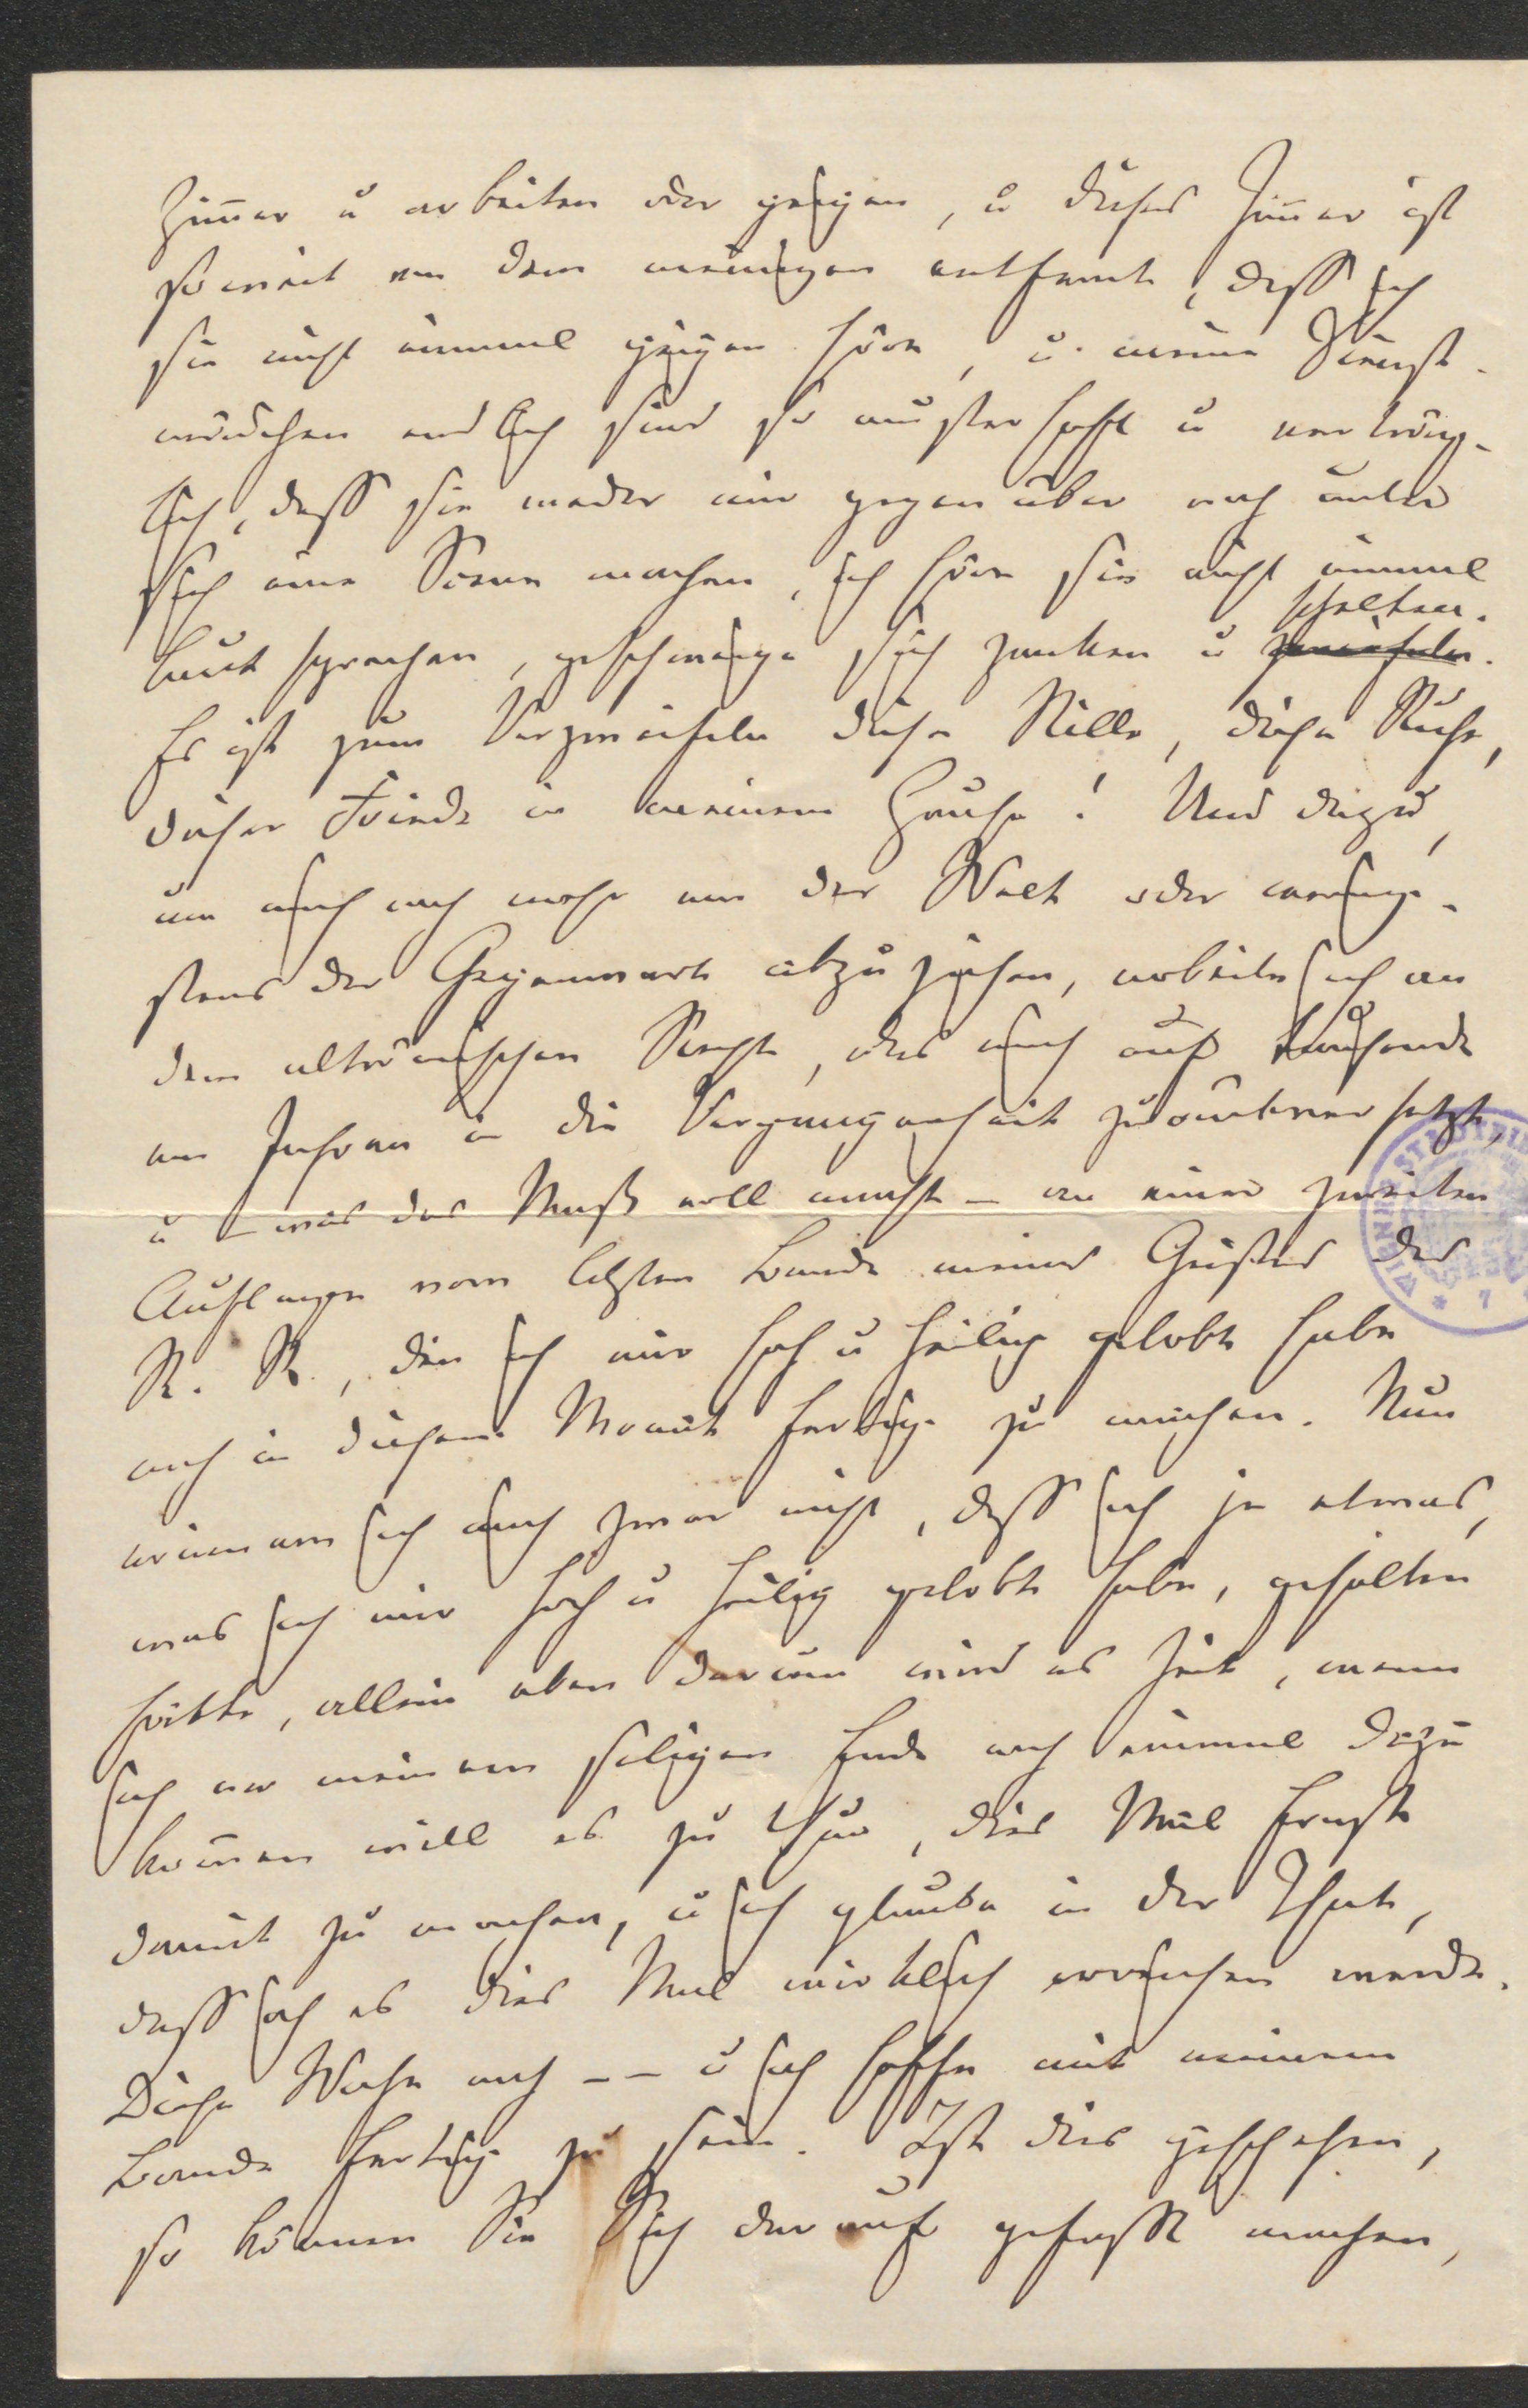 Zim̅er u arbeiten oder geigen, u dieses Zim̅er ist
so weit von dem meinigen entfernt, dass ich
sie nicht einmal geigen höre, u. meine Dienst-
mädchen endlich sind so musterhaft u verträg-
lich, dass sie weder mir gegenüber noch unter
sich eine Scene machen, ich höre sie nicht einmal
laut sprechen, geschweige sich zanken u
schelten.
Es ist zum Verzweifeln diese Stille, diese Ruhe,
dieser Friede in meinem Hause! Und dazu,
um mich noch mehr von der Welt oder wenig-
stens der Gegenwart abzuziehen, arbeite ich an
dem altrömischen Rechte, das mich auf tausende
von Jahren in die Vergangenheit zurückversetzt,
u – was das Maß voll macht – an einer zweiten
Auflage vom letzten Bande meines Geistes des
R. R., den ich mir hoch u heilig gelobt habe
noch in diesem Monat fertig zu machen. Nun
erinnere ich mich zwar nicht, dass ich je etwas,
was ich mir hoch u heilig gelobt habe, gehalten
hätte, allein eben darum wird es Zeit, wenn
ich vor meinem seligen Ende noch einmal dazu
kom̅en will es zu thun, dies Mal Ernst
damit zu machen, u ich glaube in der That,
dass ich es dies Mal wirklich erreichen werde.
Diese Woche noch – – u ich hoffe mit meinem
Bande fertig zu sein. Ist dies geschehen,
so können Sie Sich darauf gefasst machen,
WIENER STADTBI
* 7